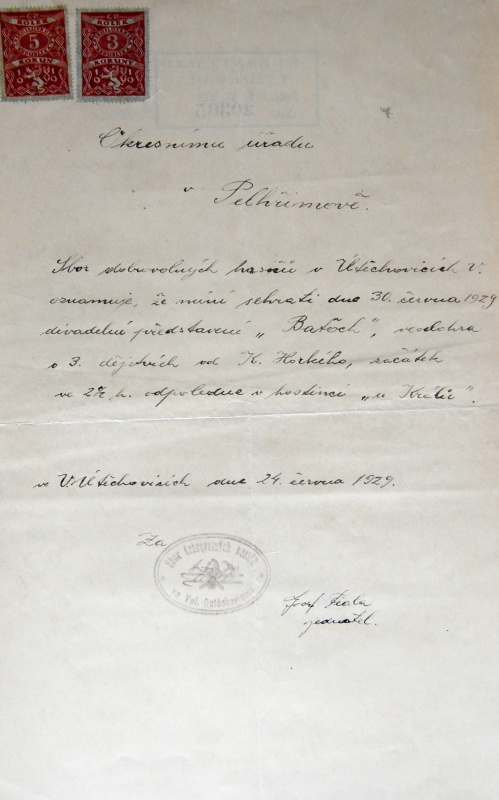 KOLEK
5
KORUN
KOLEK
3
KORUNY
20305
Okresnímu úřadu
v
Pelhřimově.
Sbor dobrovolných hasičů v Útěchovicích V.
oznamuje, že míní sehrati dne 30. června 1929
divadelní představení „Baťoch", veselohra
o 3. dějstvích od K. Horkého, začátek
ve 2½ h. odpoledne v hostinci „u Králů".
ve V. Útěchovicích dne 24. června 1929.
Za
Sbor dobrovolných hasičů
ve Vel. Outěchovicích
Josef Fiala
jednatel.